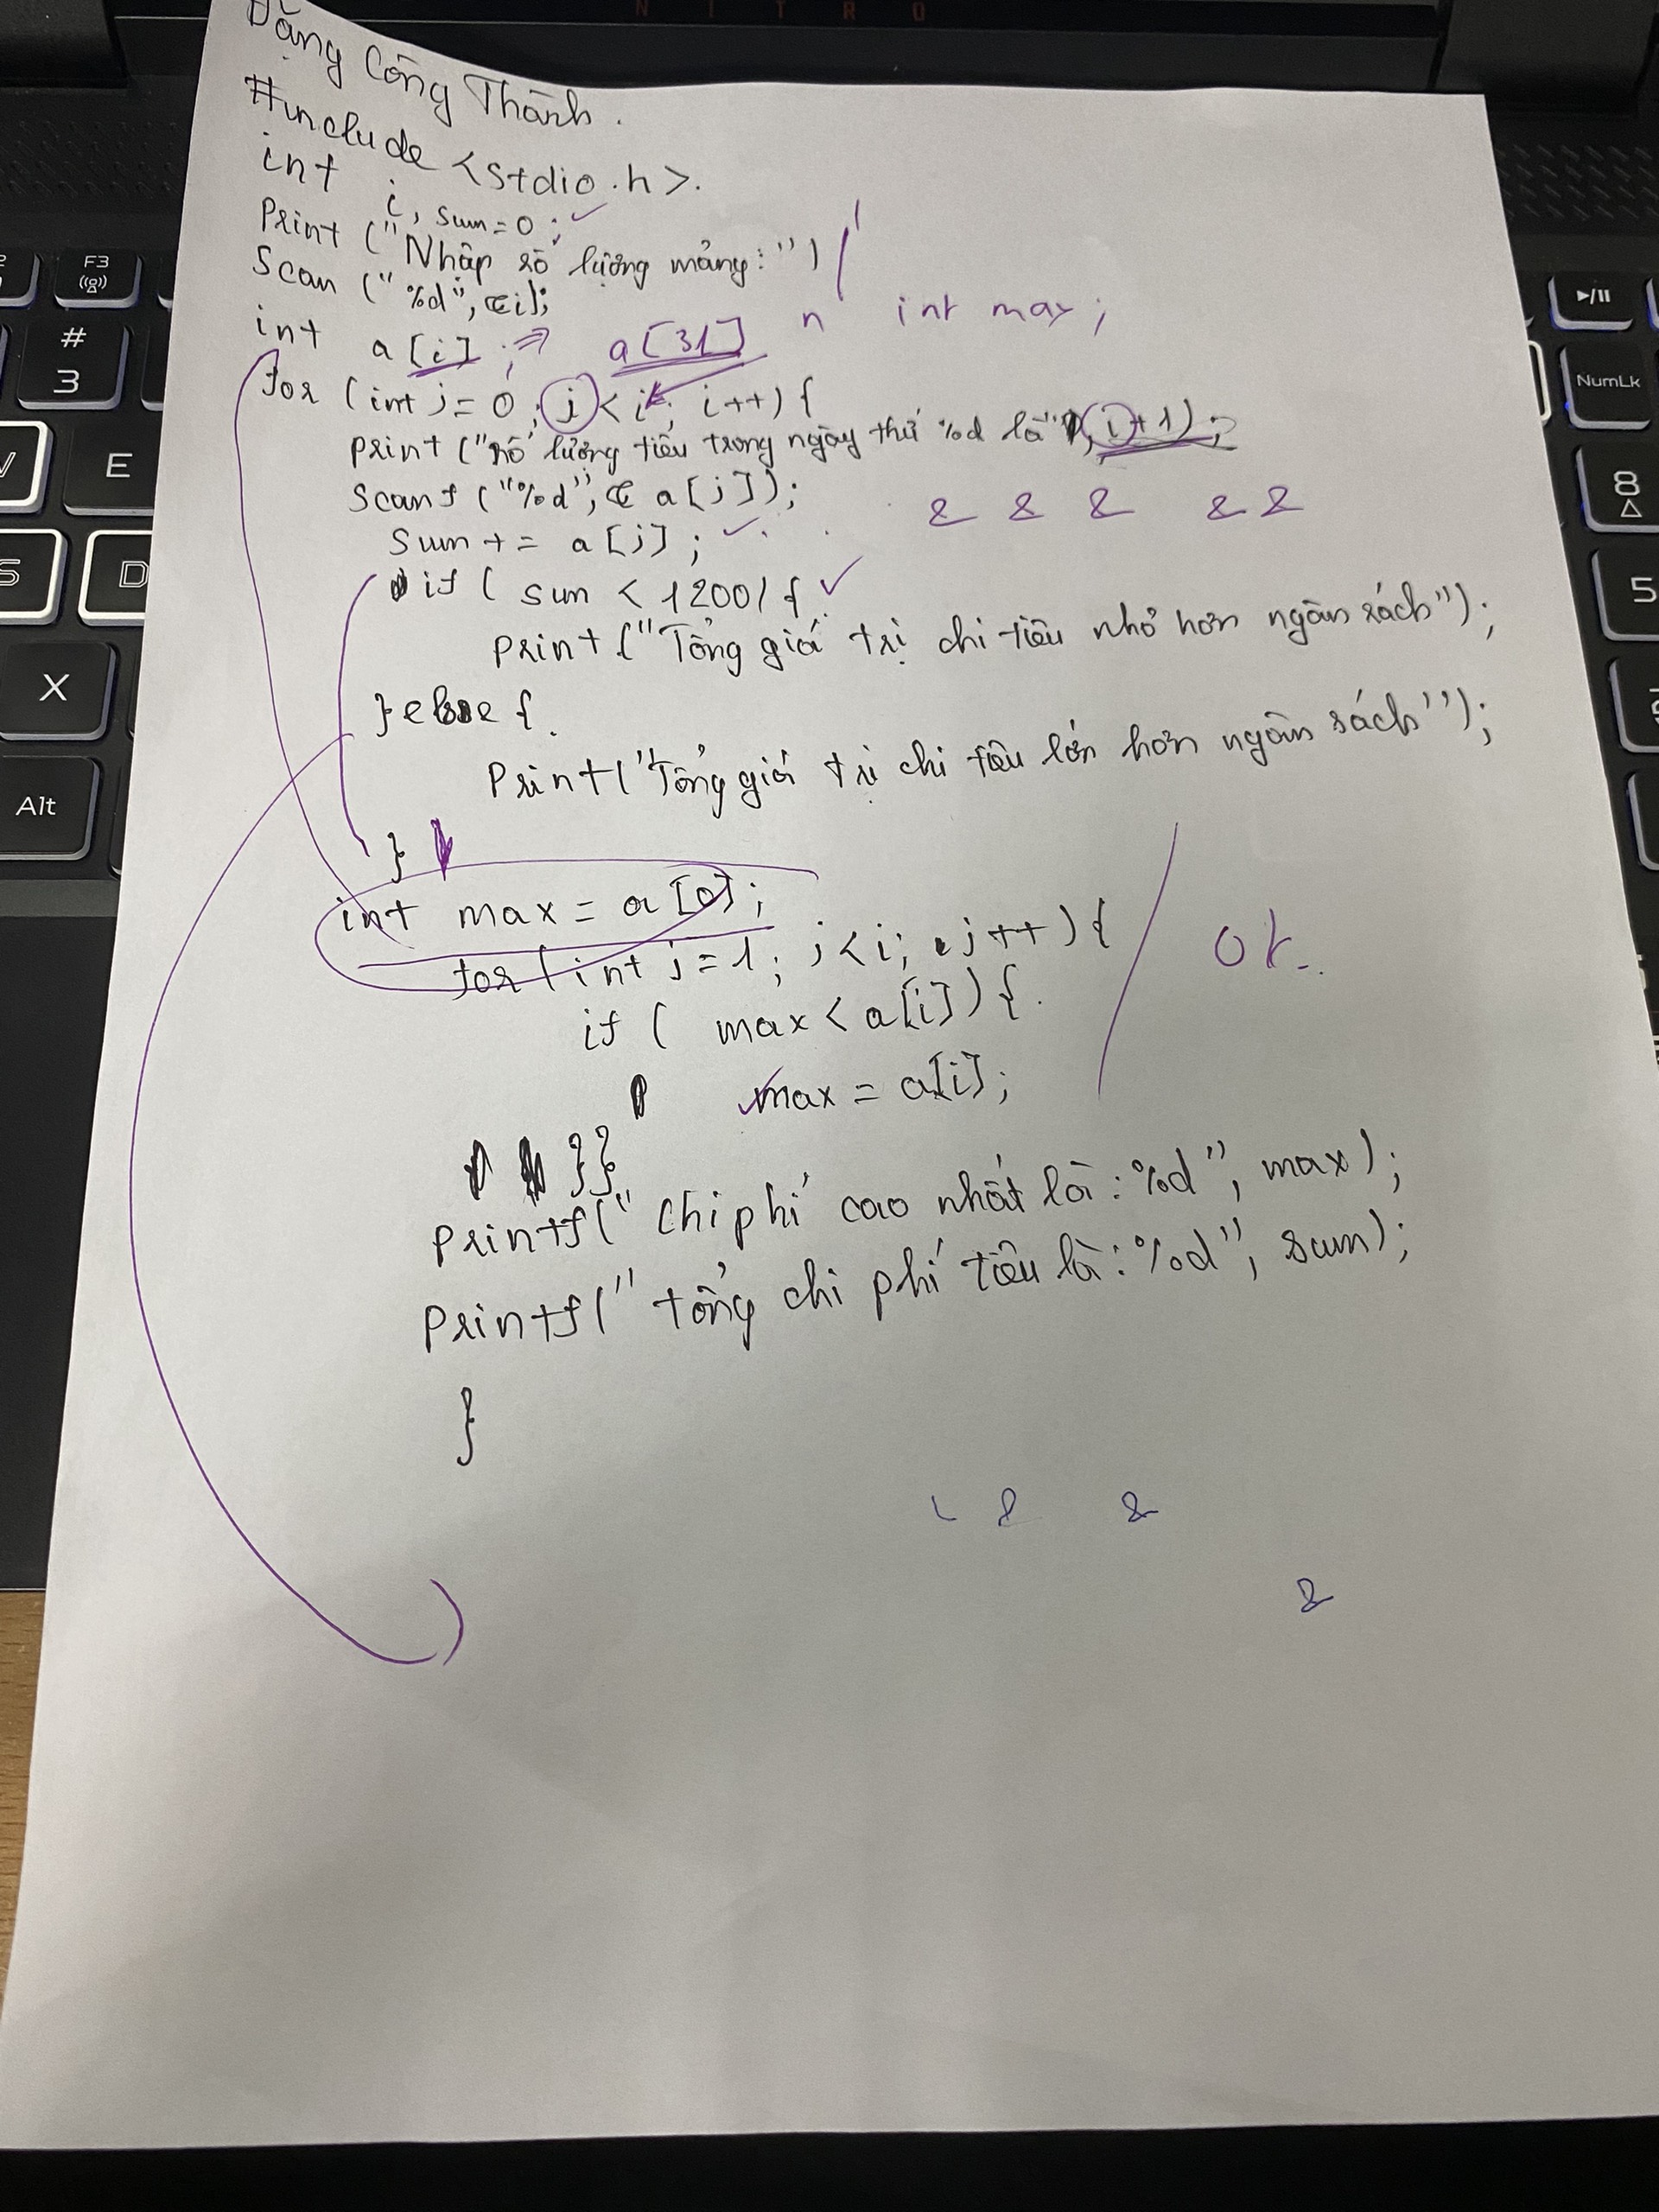 N I T R O
Đặng Công Thành.
#include <stdio.h>.
int i, sum=0;
Print ("Nhập số lượng mảng:")
Scan ("%d", &i);
int a[i]; ⇒ a[31] n int max;
for (int j=0; j<i; i++){
print ("số lượng tiêu trong ngày thứ %d là", i+1);
Scanf ("%d", & a[j]);
& & & & &
Sum += a[j];
if ( sum < 1200) {
print ("Tổng giá trị chi tiêu nhỏ hơn ngân sách");
}else {
Print("Tổng giá trị chi tiêu lớn hơn ngân sách");
}
int max = a[0];
for (int j=1; j<i; j++){
OK..
if ( max < a[i]){
max = a[i];
}}
printf(" Chi phí cao nhất là:%d", max);
printf(" tổng chi phí tiêu là:%d", sum);
}
& &
&
F3
#
3
E
S
D
X
Alt
NumLk
8
5